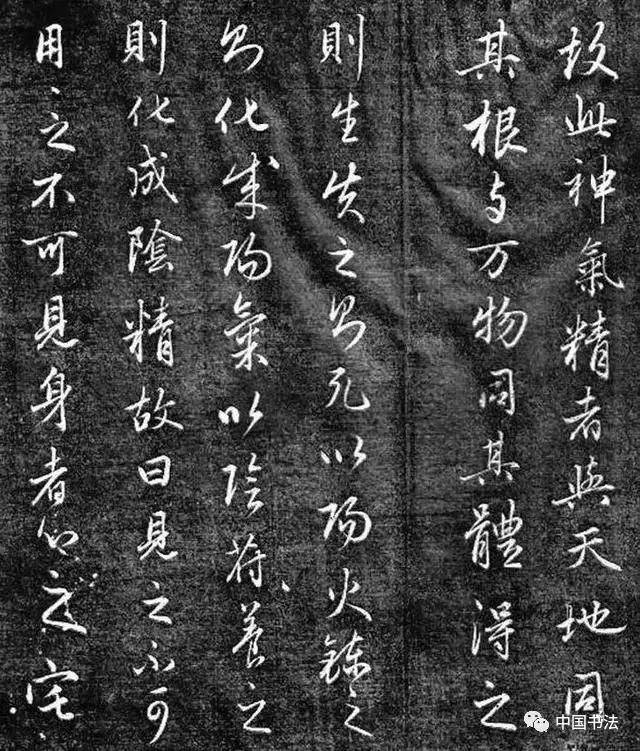 故此神氣精者與天地同
其根与万物同其體得之
則生失之即死以陽火鍊之
即化成陽氣以陰苻養之
則化成陰精故曰見之不可
用、之不可見身者心之宅
中国书法